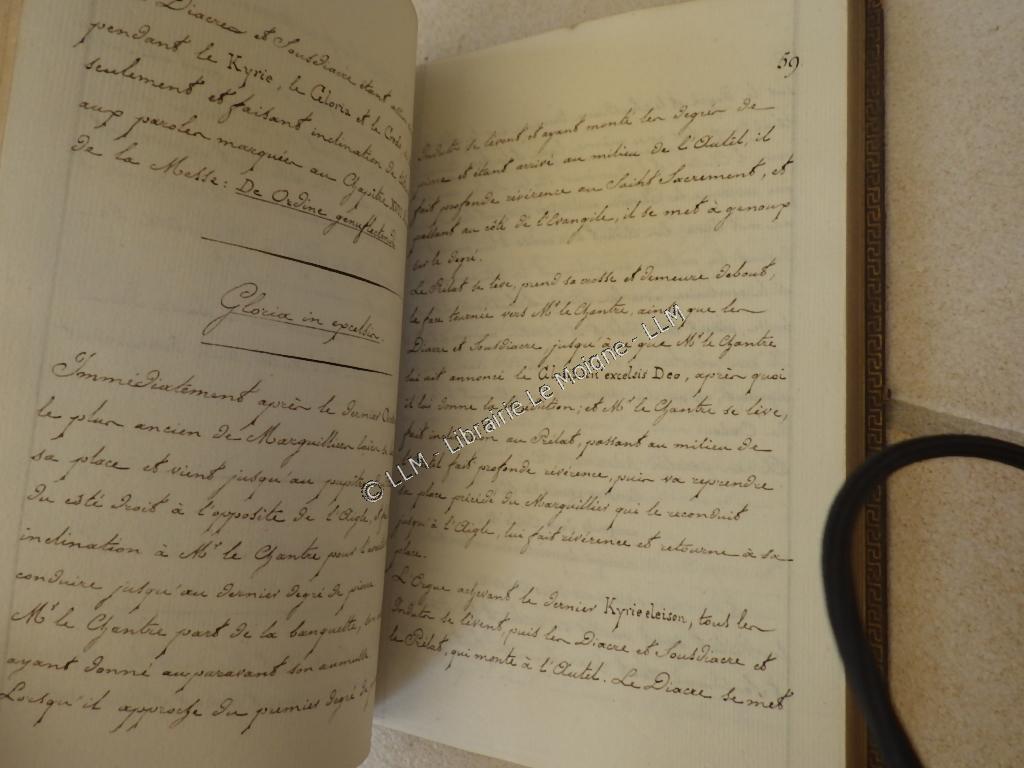 Diacre et Sousdiacre étant
pendant le Kyrie, le Gloria et le Credo
seulement et faisant inclination de
aux paroles marquées au Chapitre XVII
de la Messe: De Ordine genuflectendi
Gloria in excelsis.
Immédiatement après le dernier
le plus ancien de Marguilliers laïcs
sa place et vient jusqu'au pupitre
du costé droit à l'opposite de l'Aigle,
inclination à Mr le Chantre pour
conduire jusqu'au dernier degré de pierre
Mr le Chantre part de la banquette,
ayant donné auparavant son aumusse
Lorsqu'il approche du premier degré de
59
Induts se lèvent et ayant monté les degrés de
pierre et étant arrivé au milieu de l'Autel, il
fait profonde révérence au Saint Sacrement, et
passant au côté de l'Evangile, il se met à genoux
sur le degré.
Le Prélat se lève, prend sa crosse et demeure debout,
la face tournée vers Mr le Chantre, ainsi que les
Diacre et Sousdiacre jusqu'à ce que Mr le Chantre
lui ait annoncé le Gloria in excelsis Deo, après quoi
il lui donne la bénédiction; et Mr le Chantre se lève,
fait inclination au Prélat, passant au milieu de
il fait profonde révérence, puis va reprendre
sa place précédé du Marguillier qui le reconduit
jusqu'à l'Aigle, lui fait révérence et retourne à sa
place.
L'Orgue achevant le dernier Kyrie eleison, tous les
Induts se lèvent, puis les Diacre et Sousdiacre et
le Prélat, qui monte à l'Autel. Le Diacre se met
© LLM - Librairie Le Moigne - LLM